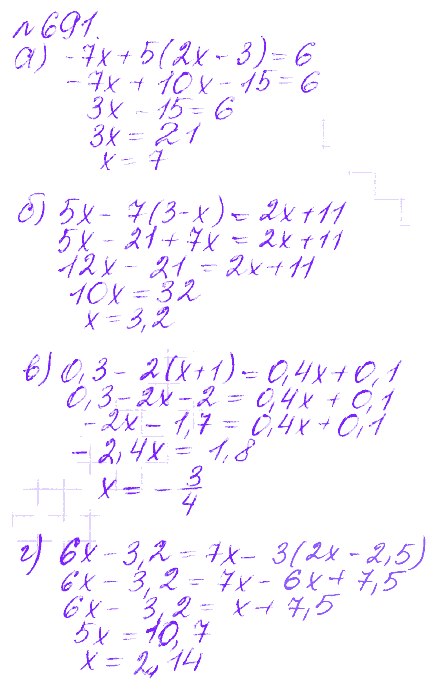 №691.
а) -7x+5(2x-3)=6
-7x+10x-15=6
3x-15=6
3x=21
x=7
б) 5x-7(3-x)=2x+11
5x-21+7x=2x+11
12x-21=2x+11
10x=32
x=3,2
в) 0,3-2(x+1)=0,4x+0,1
0,3-2x-2=0,4x+0,1
-2x-1,7=0,4x+0,1
-2,4x=1,8
x=-3/4
г) 6x-3,2=7x-3(2x-2,5)
6x-3,2=7x-6x+7,5
6x-3,2=x+7,5
5x=10,7
x=2,14